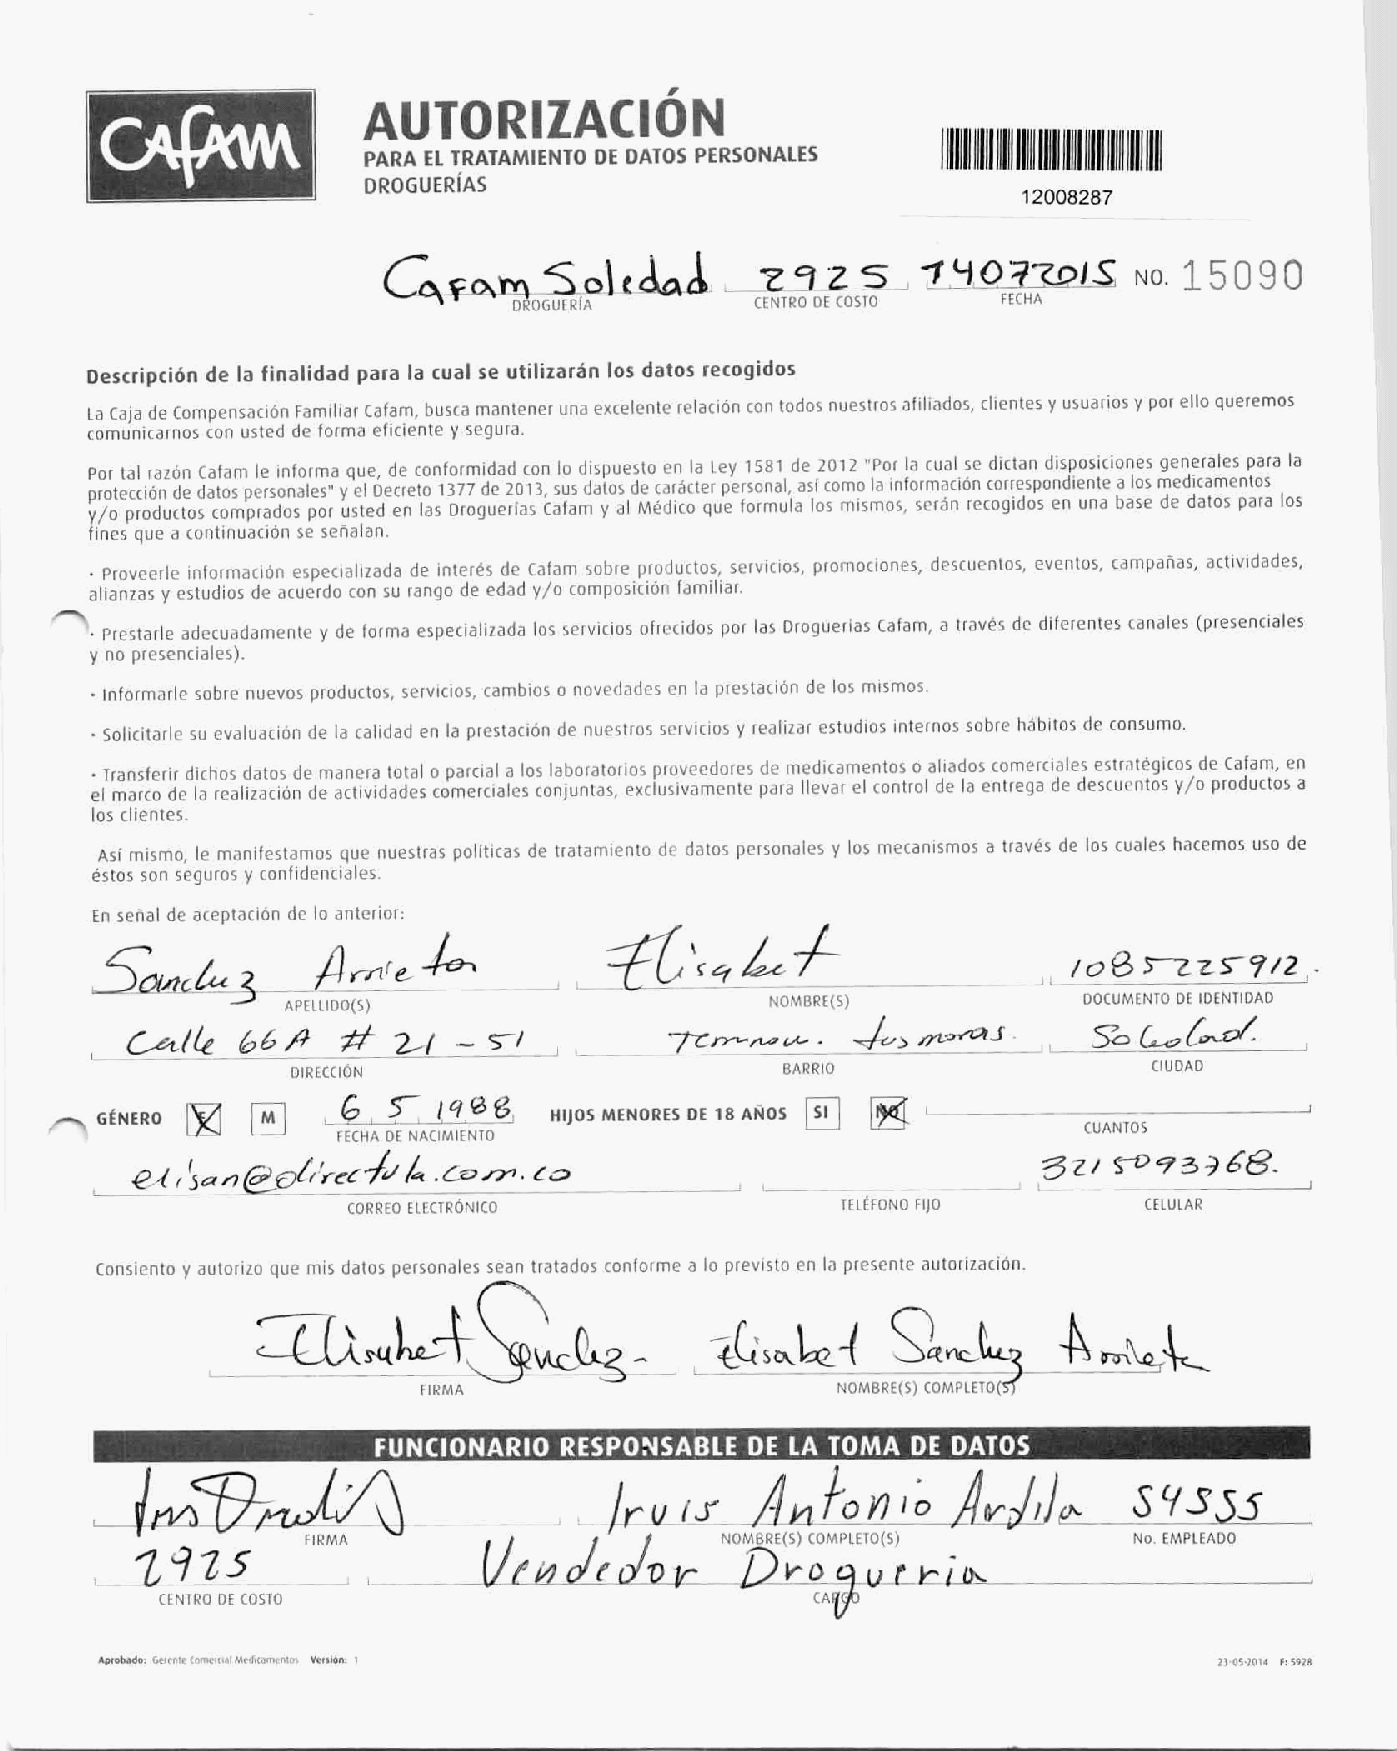 CAFAM
AUTORIZACIÓN
PARA EL TRATAMIENTO DE DATOS PERSONALES
DROGUERÍAS
12008287
Cafam Soledad 2925 14072015 NO. 15090
DROGUERÍA CENTRO DE COSTO FECHA
Descripción de la finalidad para la cual se utilizarán los datos recogidos
La Caja de Compensación Familiar Cafam, busca mantener una excelente relación con todos nuestros afiliados, clientes y usuarios y por ello queremos
comunicarnos con usted de forma eficiente y segura.
Por tal razón Cafam le informa que, de conformidad con lo dispuesto en la Ley 1581 de 2012 "Por la cual se dictan disposiciones generales para la
protección de datos personales" y el Decreto 1377 de 2013, sus datos de carácter personal, así como la información correspondiente a los medicamentos
y/o productos comprados por usted en las Droguerías Cafam y al Médico que formula los mismos, serán recogidos en una base de datos para los
fines que a continuación se señalan.
· Proveerle información especializada de interés de Cafam sobre productos, servicios, promociones, descuentos, eventos, campañas, actividades,
alianzas y estudios de acuerdo con su rango de edad y/o composición familiar.
· Prestarle adecuadamente y de forma especializada los servicios ofrecidos por las Droguerías Cafam, a través de diferentes canales (presenciales
y no presenciales).
· Informarle sobre nuevos productos, servicios, cambios o novedades en la prestación de los mismos.
· Solicitarle su evaluación de la calidad en la prestación de nuestros servicios y realizar estudios internos sobre hábitos de consumo.
· Transferir dichos datos de manera total o parcial a los laboratorios proveedores de medicamentos o aliados comerciales estratégicos de Cafam, en
el marco de la realización de actividades comerciales conjuntas, exclusivamente para llevar el control de la entrega de descuentos y/o productos a
los clientes.
Así mismo, le manifestamos que nuestras políticas de tratamiento de datos personales y los mecanismos a través de los cuales hacemos uso de
éstos son seguros y confidenciales.
En señal de aceptación de lo anterior:
Sanchez Arrieta Elisabet 1085225912.
APELLIDO(S) NOMBRE(S) DOCUMENTO DE IDENTIDAD
Calle 66A # 21 - 51 moras. Soledad.
DIRECCIÓN BARRIO CIUDAD
GÉNERO F M 6 5 1988 HIJOS MENORES DE 18 AÑOS SI NO
FECHA DE NACIMIENTO CUANTOS
elisan@directula.com.co 3215093768.
CORREO ELECTRÓNICO TELÉFONO FIJO CELULAR
Consiento y autorizo que mis datos personales sean tratados conforme a lo previsto en la presente autorización.
Elisabet Sanchez- Elisabet Sanchez Arrieta
FIRMA NOMBRE(S) COMPLETO(S)
FUNCIONARIO RESPONSABLE DE LA TOMA DE DATOS
Irvis Antonio Ardila 54555
FIRMA NOMBRE(S) COMPLETO(S) No. EMPLEADO
2925 Vendedor Drogueria
CENTRO DE COSTO CARGO
Aprobado: Gerente Comercial Medicamentos Versión: 1 23-05-2014 F: 5928